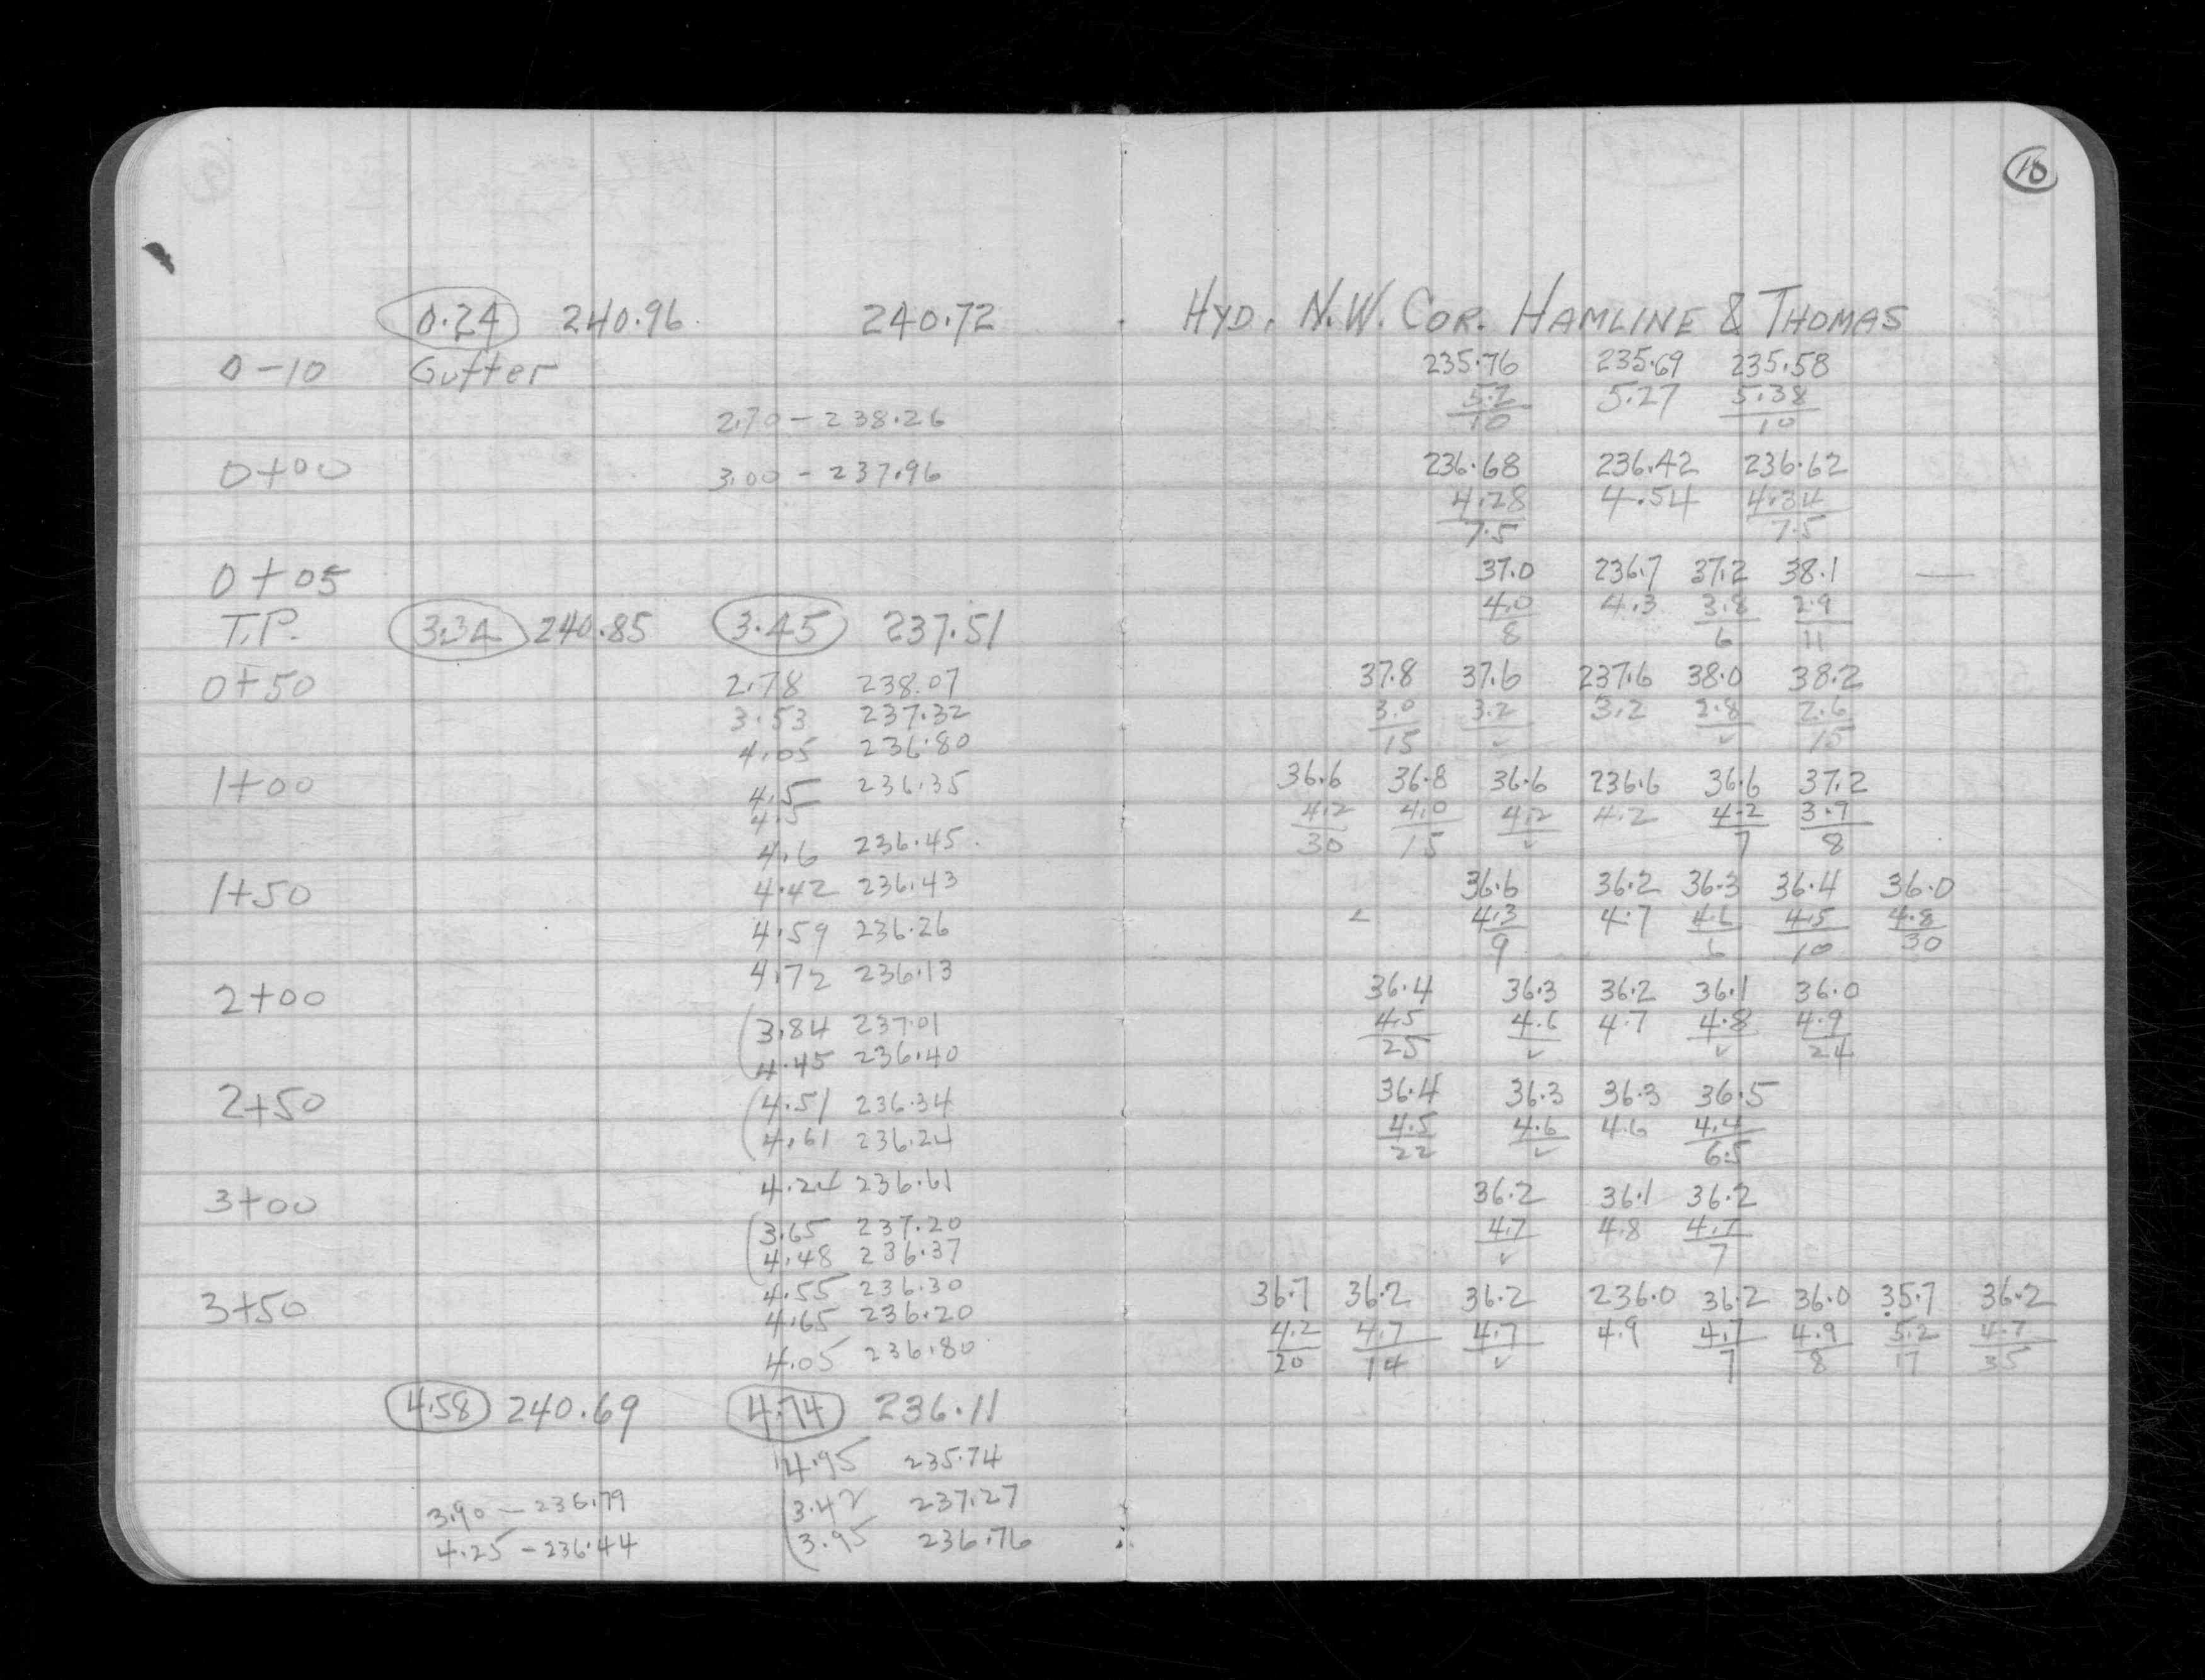 10
0.24 240.96 240.72 HYD. N.W. COR. HAMLINE & THOMAS
0-10 Gutter 235.76 235.69 235.58
2.70 - 238.26 5.2 5.27 5.38
10 10
0+00 3.00 - 237.96 236.68 236.42 236.62
4.28 4.54 4.34
7.5 7.5
0+05 37.0 236.7 37.2 38.1 —
T.P. 3.34 240.85 3.45 237.51 4.0 4.3 3.8 2.9
8 6 11
0+50 2.78 238.07 37.8 37.6 237.6 38.0 38.2
3.53 237.32 3.0 3.2 3.2 2.8 2.6
4.05 236.80 15 ✓ ✓ 15
1+00 4.5 236.35 36.6 36.8 36.6 236.6 36.6 37.2
4.5 4.2 4.0 4.2 4.2 4.2 3.7
4.6 236.45 30 15 ✓ 7 8
1+50 4.42 236.43 36.6 36.2 36.3 36.4 36.0
4.59 236.26 4.3 4.7 4.6 4.5 4.8
9 6 10 30
4.72 236.13
2+00 36.4 36.3 36.2 36.1 36.0
3.84 237.01 4.5 4.6 4.7 4.8 4.9
4.45 236.40 25 ✓ ✓ 24
2+50 4.51 236.34 36.4 36.3 36.3 36.5
4.61 236.24 4.5 4.6 4.6 4.4
22 ✓ 6.5
3+00 4.24 236.61 36.2 36.1 36.2
3.65 237.20 4.7 4.8 4.7
4.48 236.37 ✓ 7
3+50 4.55 236.30 36.7 36.2 36.2 236.0 36.2 36.0 35.7 36.2
4.65 236.20 4.2 4.7 4.7 4.9 4.7 4.9 5.2 4.7
4.05 236.80 20 14 ✓ 7 8 17 35
4.58 240.69 4.74 236.11
4.95 235.74
3.90 - 236.79 3.42 237.27
4.25 - 236.44 3.95 236.76